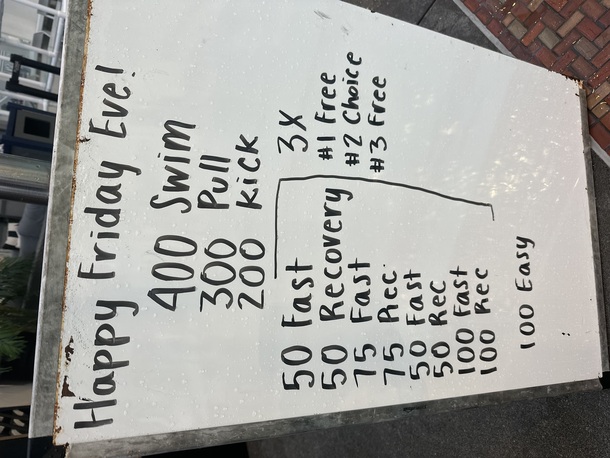 Happy Friday Eve!
400 Swim
300 Pull
200 Kick
50 Fast 3X
50 Recovery #1 Free
75 Fast #2 Choice
75 Rec. #3 Free
50 Fast
50 Rec
100 Fast
100 Rec
100 Easy